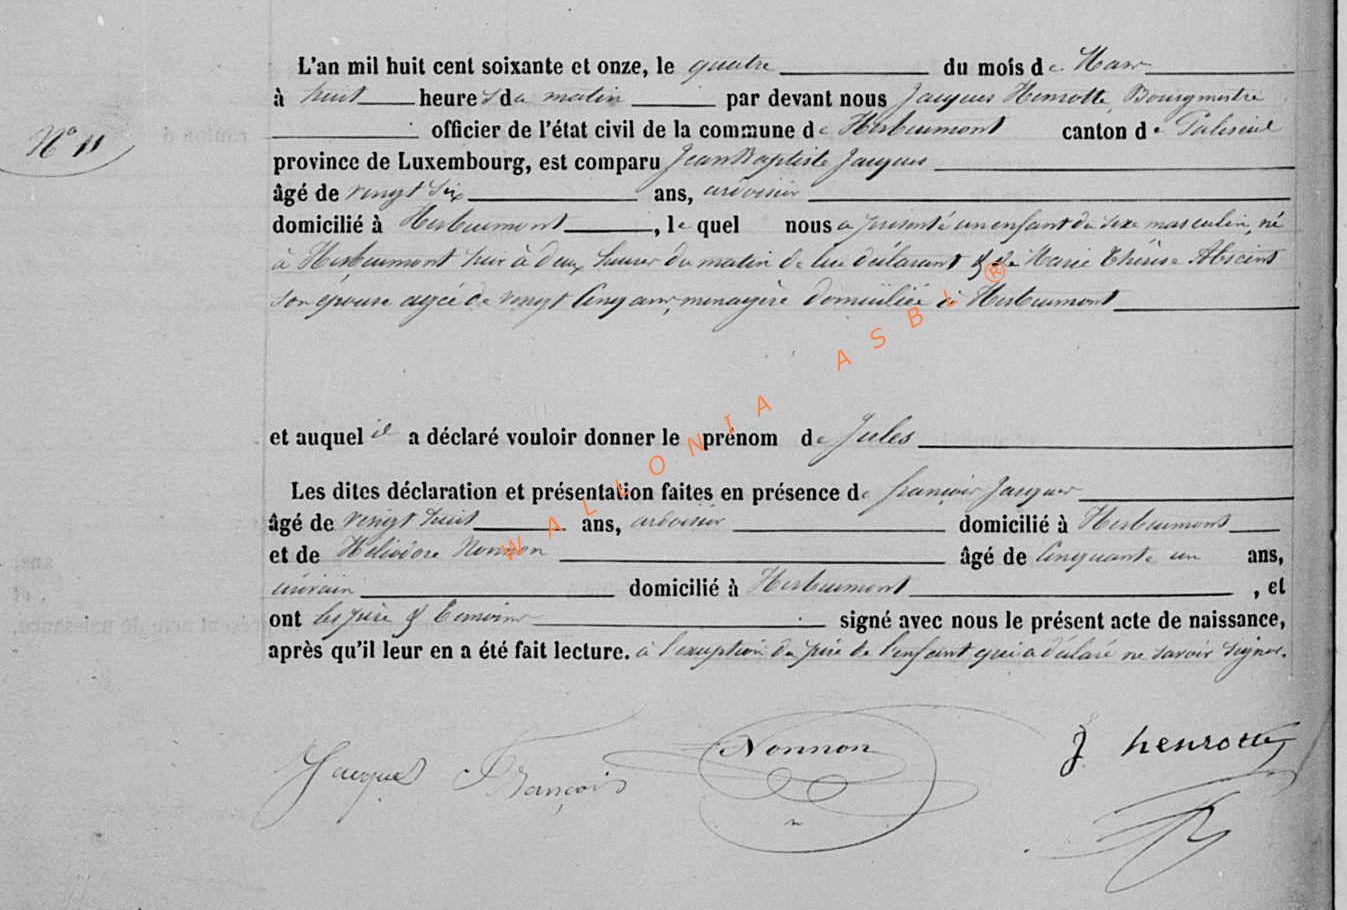 L'an mil huit cent soixante et onze, le quatre du mois de Mars
à huit heures du matin par devant nous Jacques Henrotte Bourgmestre
N° 11
officier de l'état civil de la commune de Herbeumont canton de Paliseul
province de Luxembourg, est comparu Jean Baptiste Jacques
âgé de vingt six ans, ardoisier
domicilié à Herbeumont, le quel nous a présenté un enfant du sexe masculin, né
à Herbeumont hier à deux heures du matin de lui déclarant & de Marie Thérèse
son épouse agée de vingt cinq ans, menagère domiciliée à Herbeumont
et auquel il a déclaré vouloir donner le prénom de Jules
Les dites déclaration et présentation faites en présence de françois Jacques
âgé de vingt huit ans, ardoisier domicilié à Herbeumont
et de Héliodore Nonnon âgé de Cinquante un ans,
écrivain domicilié à Herbeumont, et
ont les père & témoins signé avec nous le présent acte de naissance,
après qu'il leur en a été fait lecture. à l'exception du père de l'enfant qui a déclaré ne savoir signer.
Jacques François Nonnon J henrotte
WALLONIA ASBL ®